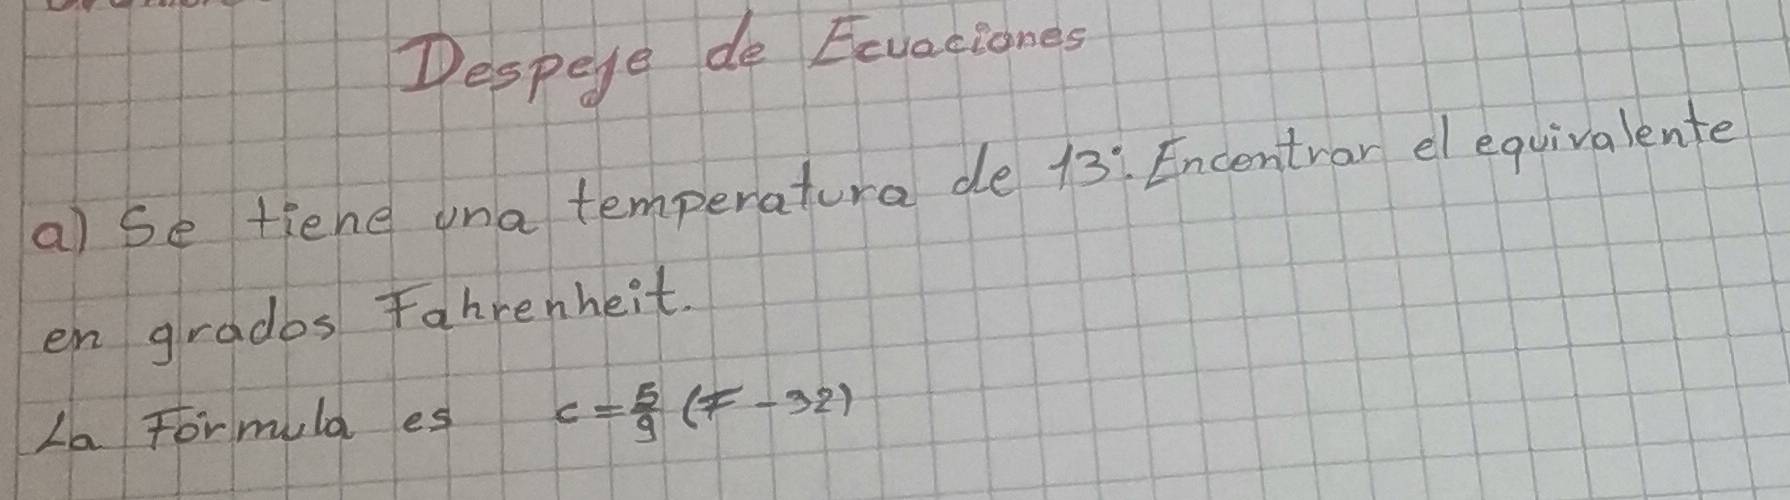 Despeje de Ecuaciones
a) Se tiene una temperatura de 13°. Encontrar el equivalente
en grados Fahrenheit.
La Fórmula es c = 5/9 (F - 32)